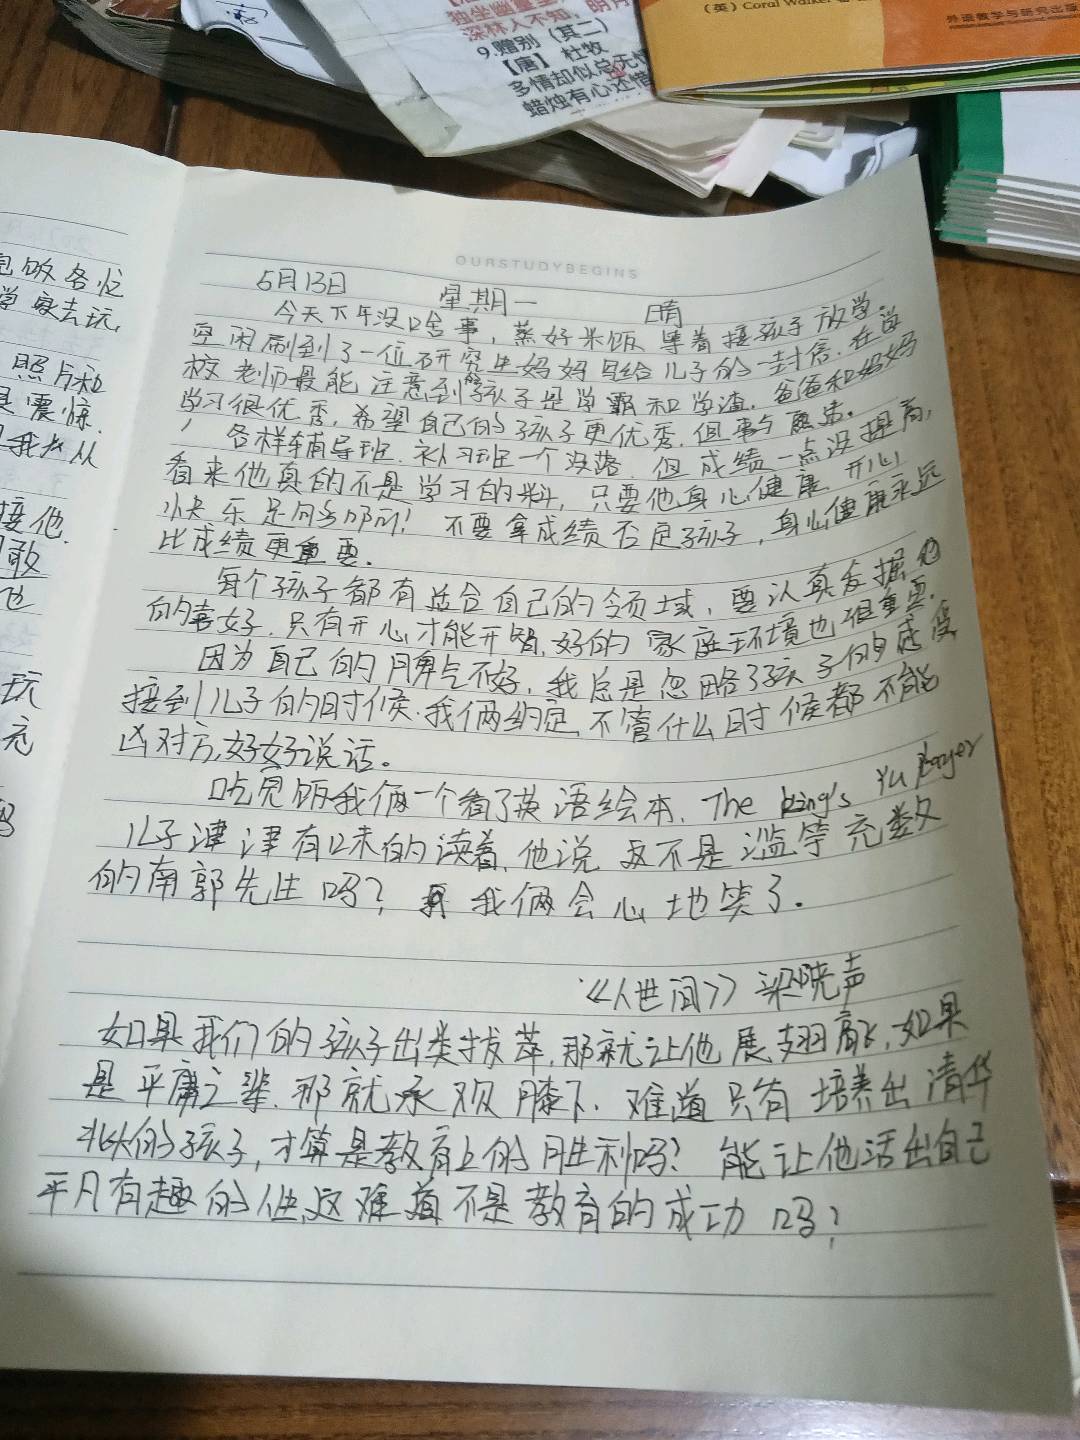 独坐幽篁里
深林人不知，明月
9.赠别（其二）
【唐】杜牧
多情却似总无情
蜡烛有心还惜
（英）Coral Walker
外语教学与研究出版
OURSTUDYBEGINS
5月13日 星期一 晴
今天下午没啥事，蒸好米饭，等着接孩子放学。
空闲刷到了一位研究生妈妈写给儿子的一封信，在学
校老师最能注意到的孩子是学霸和学渣，爸爸和妈妈
学习很优秀，希望自己的孩子更优秀，但事与愿违。
，各样辅导班、补习班一个没落，但成绩一点没提高，
看来他真的不是学习的料，只要他身心健康，开心
快乐是何尝啊！不要拿成绩否定孩子，身心健康永远
比成绩更重要。
每个孩子都有适合自己的领域，要认真发掘他
的喜好，只有开心才能开智，好的家庭环境也很重要。
因为自己的脾气不好，我总是忽略了孩子的感受
接到儿子的时候，我俩约定，不管什么时候都不能
凶对方，好好说话。
吃完饭我俩一个看了英语绘本，The king's Yu player
儿子津津有味的读着，他说，这不是滥竽充数
的南郭先生吗？我俩会心地笑了。
《人世间》梁晓声
如果我们的孩子出类拔萃，那就让他展翅高飞，如果
是平庸之辈，那就承欢膝下，难道只有培养出清华
北大的孩子，才算是教育上的胜利吗？能让他活出自己
平凡有趣的他，这难道不是教育的成功吗？
包饭各忙
去玩，
照片和
震惊
我从
接他.
敢
也
玩
充